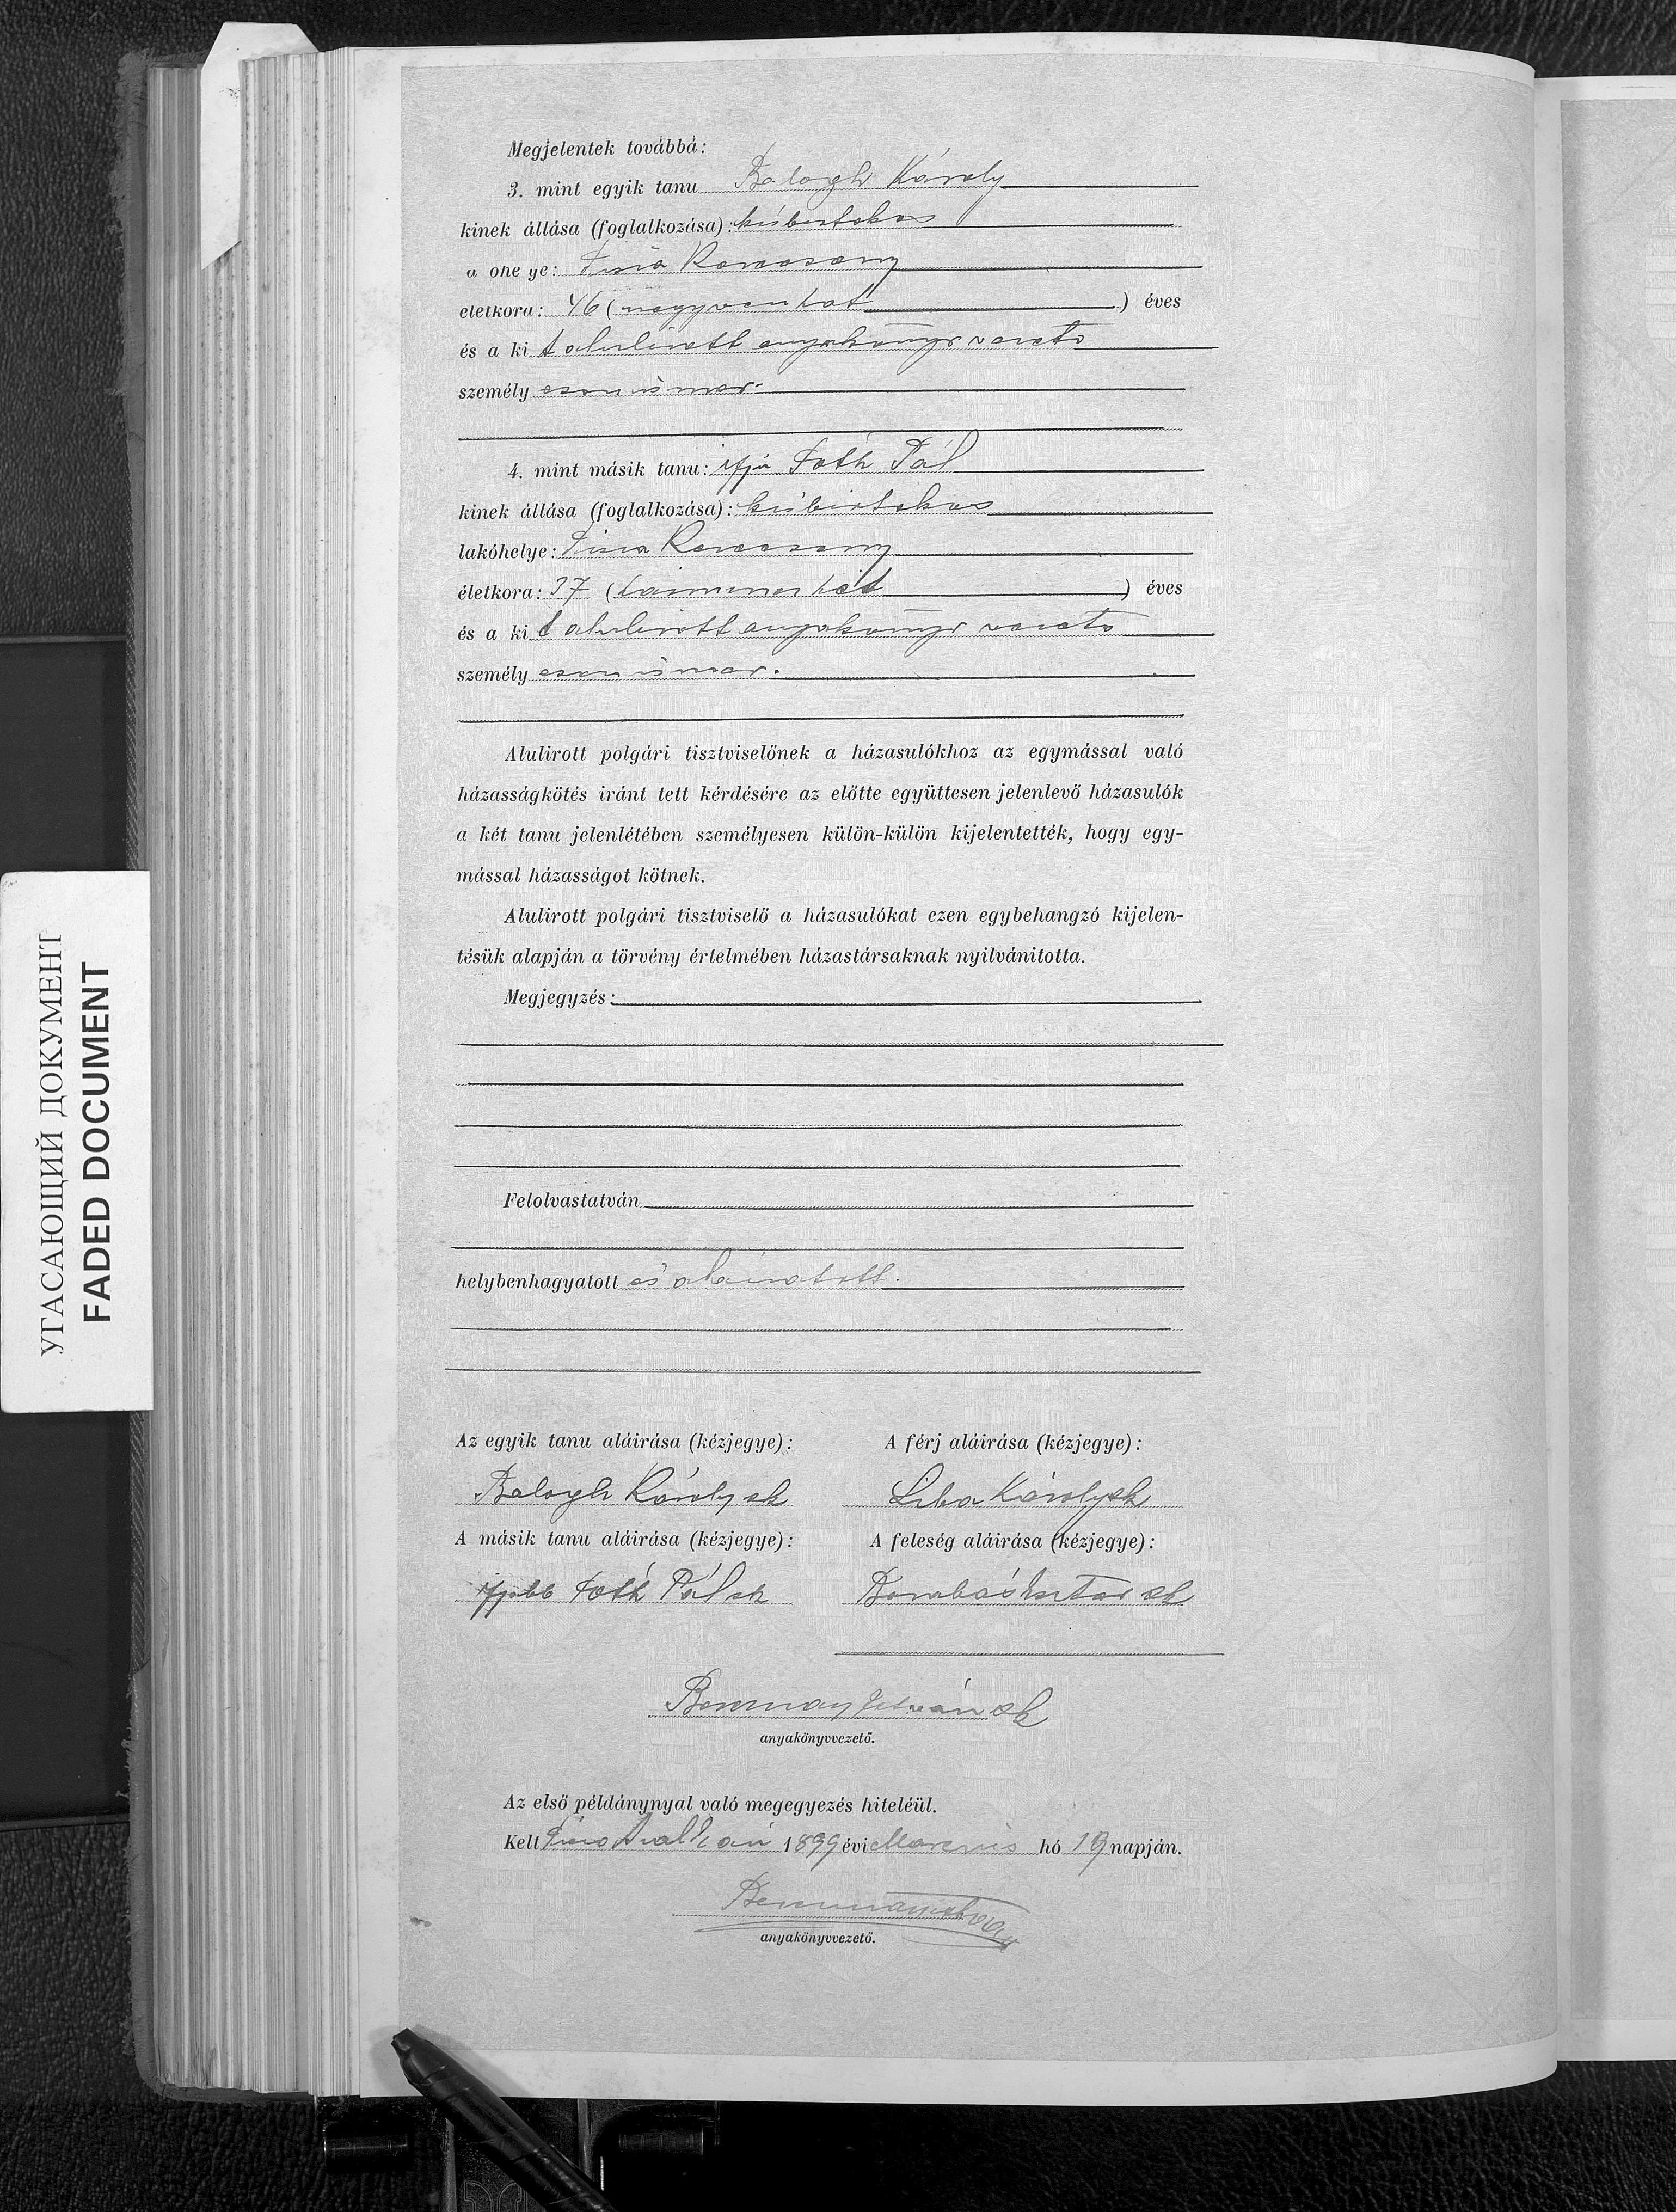 Megjelentek továbbá:
3. mint egyik tanu Balogh Károly
kinek állása (foglalkozása): kisbirtokos
a óhe ye: Tisza Karacsony
életkora: 46 (negyvenhat) éves
és a ki t alulirott anyakönyvvezető
személyesen ismer.
4. mint másik tanu: ifju Tóth Pál
kinek állása (foglalkozása): kisbirtokos
lakóhelye: Tisza Karacsony
életkora: 37 (harminczhét) éves
és a ki t alulirott anyakönyvvezető
személyesen ismer.
Alulirott polgári tisztviselőnek a házasulókhoz az egymással való
házasságkötés iránt tett kérdésére az előtte együttesen jelenlevő házasulók
a két tanu jelenlétében személyesen külön-külön kijelentették, hogy egy-
mással házasságot kötnek.
Alulirott polgári tisztviselő a házasulókat ezen egybehangzó kijelen-
tésük alapján a törvény értelmében házastársaknak nyilvánitotta.
Megjegyzés:
Felolvastatván
helybenhagyatott és aláiratott.
Az egyik tanu aláirása (kézjegye): A férj aláirása (kézjegye):
Balogh Károly sk Liba Károly sk
A másik tanu aláirása (kézjegye): A feleség aláirása (kézjegye):
ifjabb Tóth Pál sk Eszter sk
István sk
anyakönyvvezető.
Az első példánynyal való megegyezés hiteléül.
Kelt 1899 évi Marczius hó 19 napján.
anyakönyvvezető.
УГАСАЮЩИЙ ДОКУМЕНТ
FADED DOCUMENT